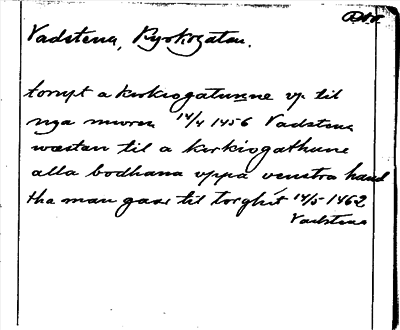 DMS.
Vadstena, Kyrkogatan.
tompt a kirkiogatunne vp til
nya muren 14/4 1456 Vadstena
wæstan til a kirkiogathune
alla bodhana vppa venstra hand
tha man gaar til torghit 14/5 1462
Vadstena